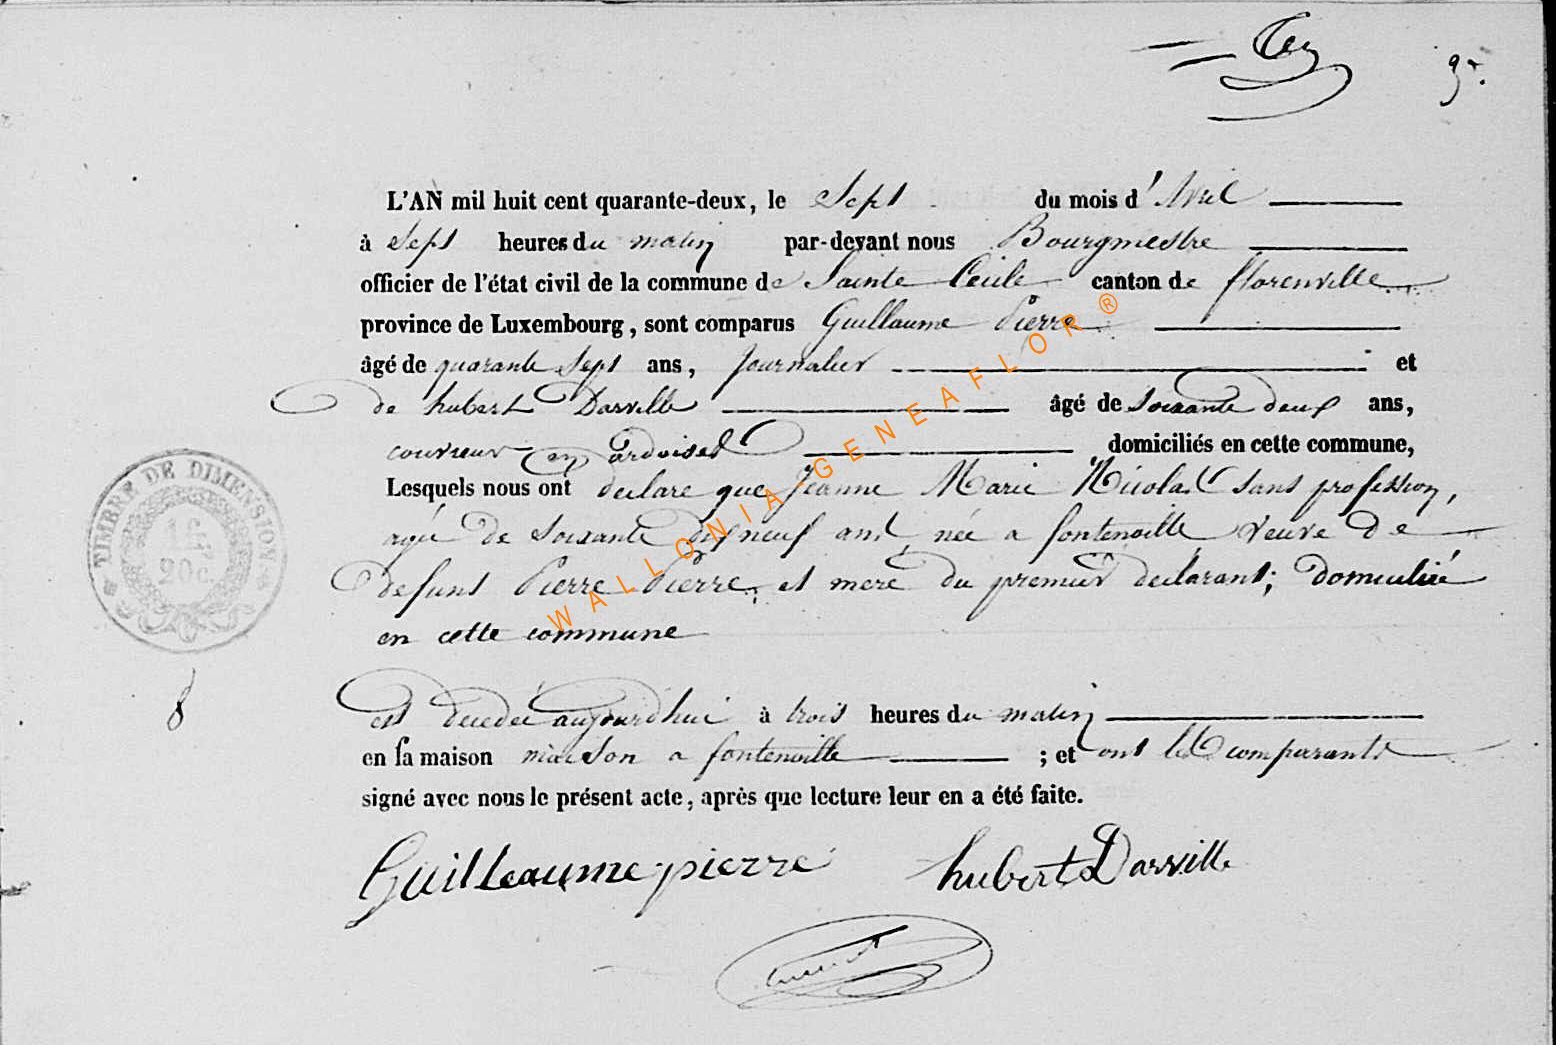 L'AN mil huit cent quarante-deux, le Sept du mois d'Avril
à Sept heures du matin par-devant nous Bourgmestre
officier de l'état civil de la commune de Sainte Cécile canton de florenville
province de Luxembourg, sont comparus Guillaume Pierre
âgé de quarante Sept ans, Journalier et
de hubert Darville âgé de Soixante deux ans,
couvreur en ardoises domiciliés en cette commune,
Lesquels nous ont declare que Jeanne Marie Nicolas sans profession,
agée de Soixante dix neuf ans née a fontenoille veuve de
defunt Pierre Pierre, et mere du premier declarant; domiciliée
en cette commune
TIMBRE DE DIMENSION
1 fr.
20 c.
8
est decedée aujourd'hui à trois heures du matin
en sa maison maison a fontenoille ; et ont les comparants
signé avec nous le présent acte, après que lecture leur en a été faite.
Guilleaume pierre hubert Darville
WALLONIA-GENEAFLOR ®